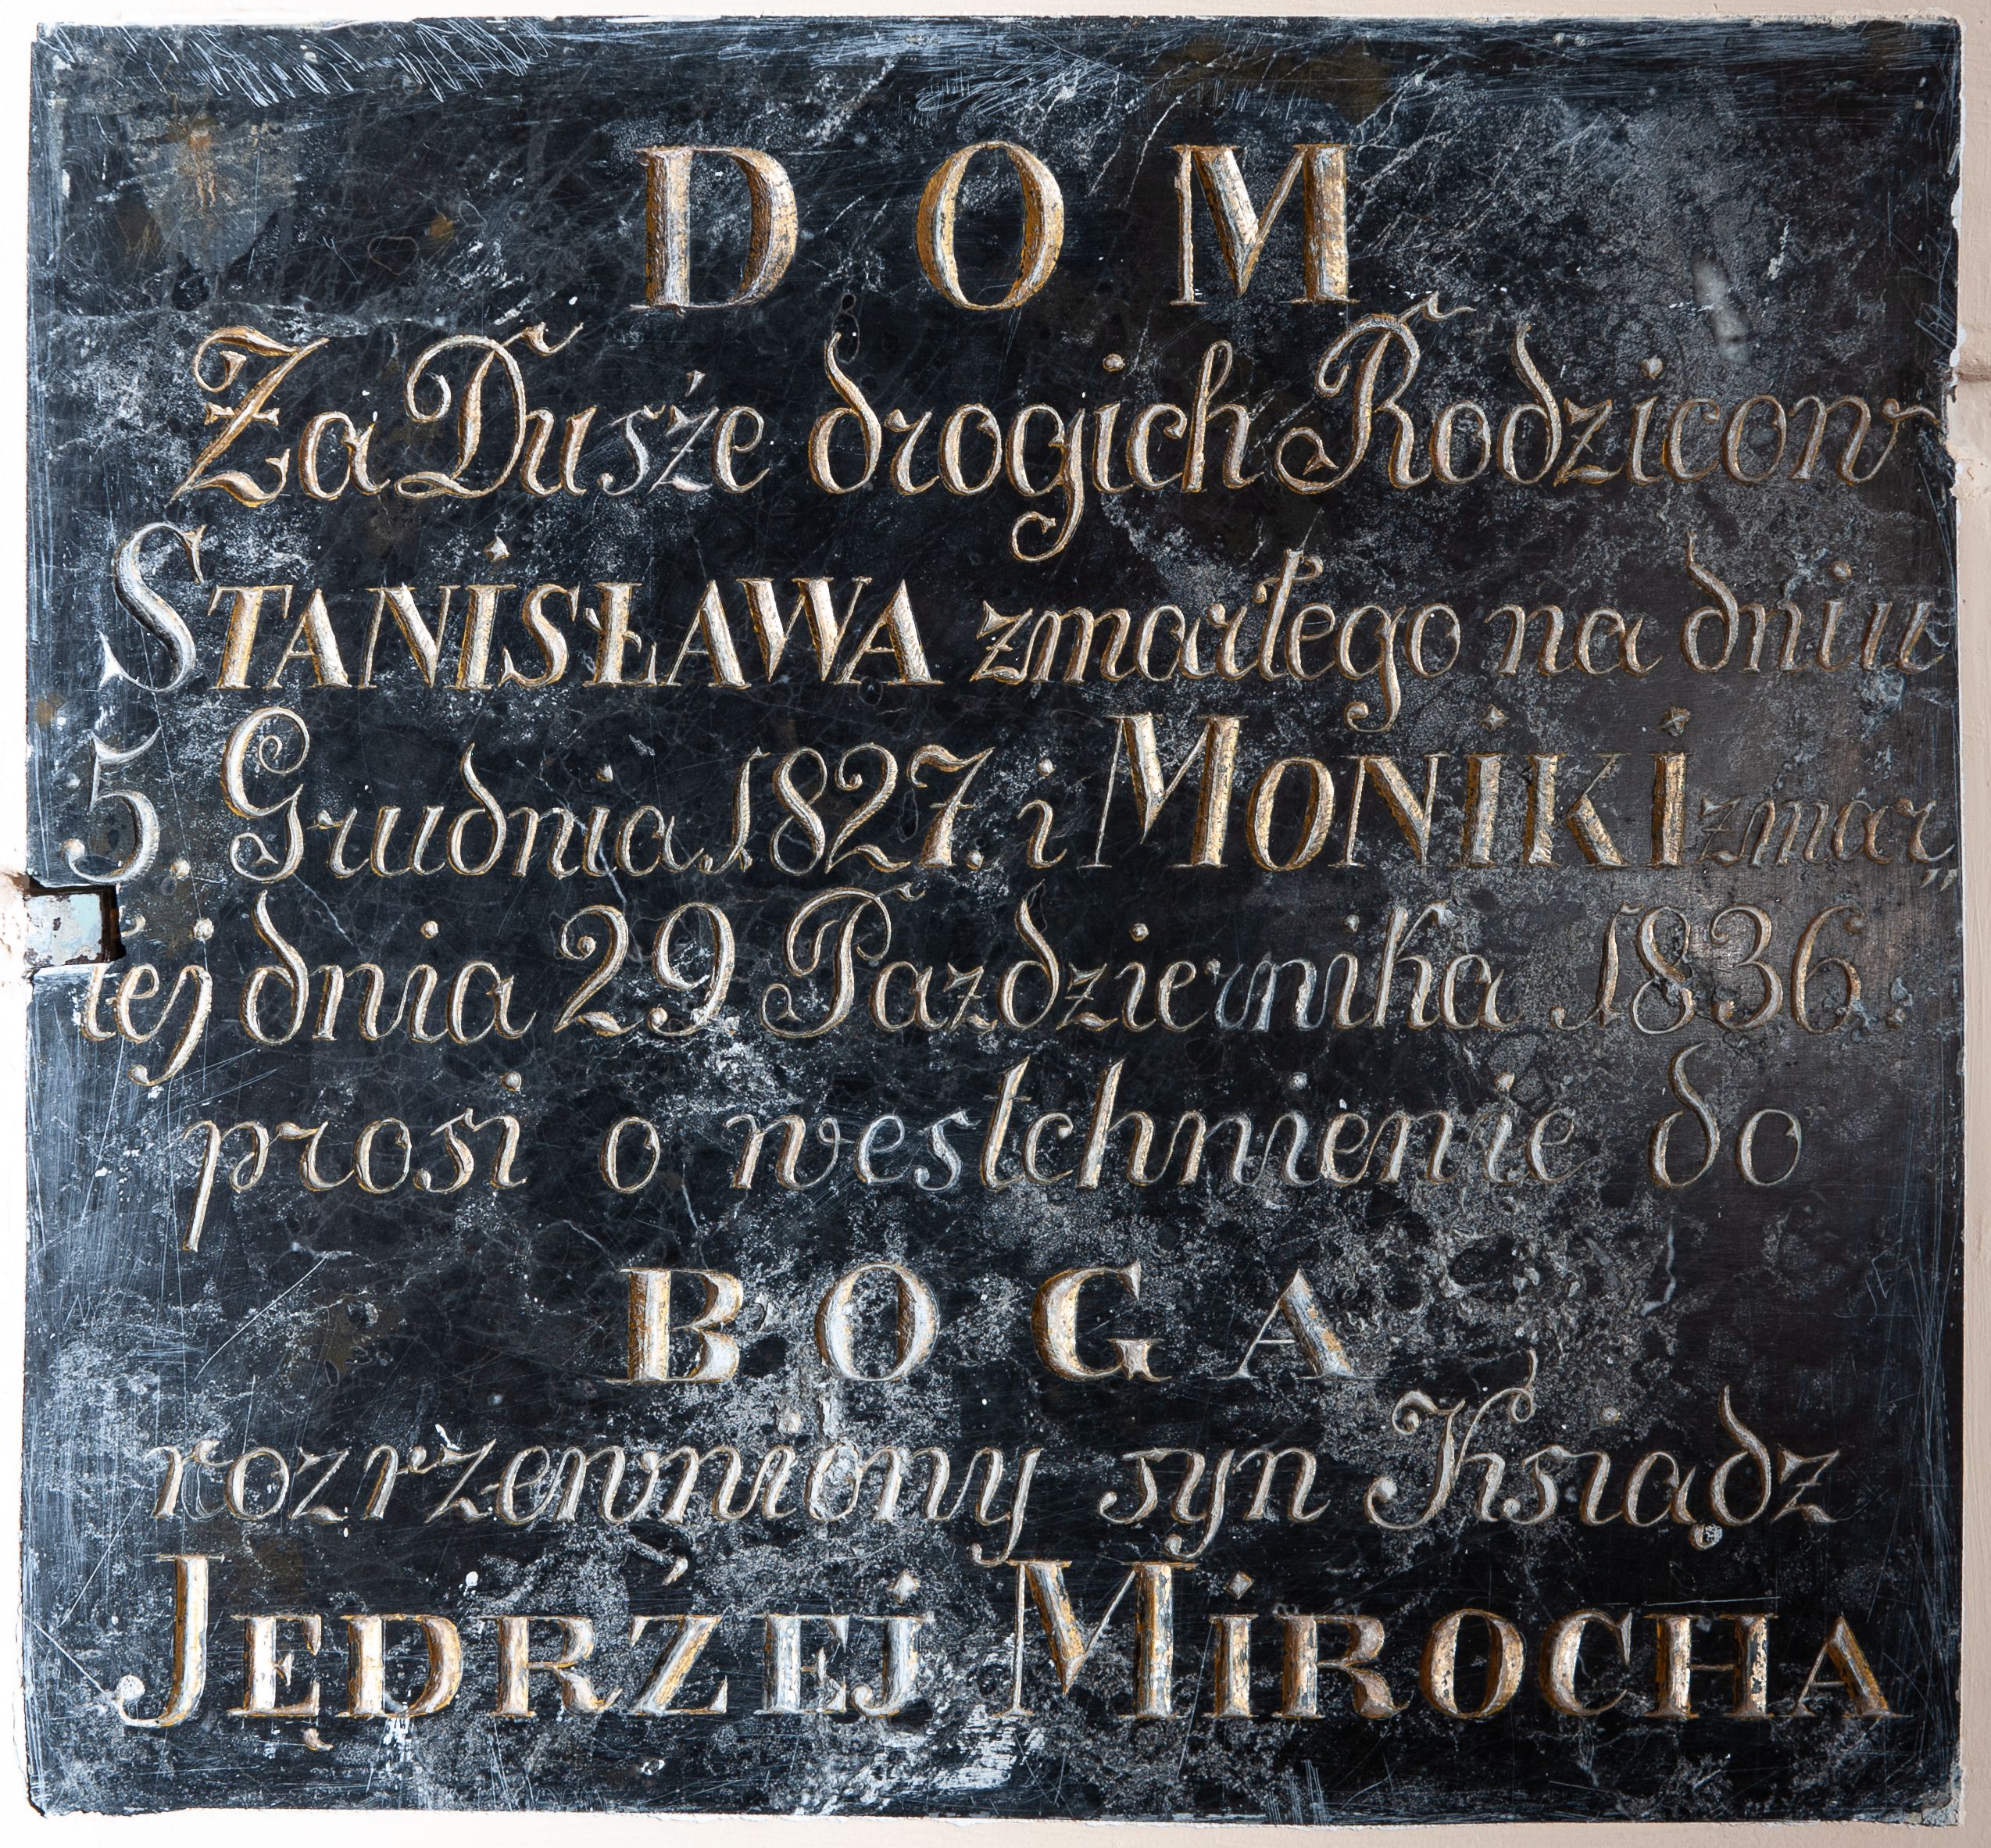 D O M
Za Dusźe drogich Rodzicow
STANiSŁAWA zmarłego na dniu
5. Grudnia 1827. i MONiKi zmar„
łej dnia 29 Pazdziernika 1836.
prosi o westchnienie do
B O G A
rozrzewniony syn Ksiądz
JĘDRŹEj MiROCHA